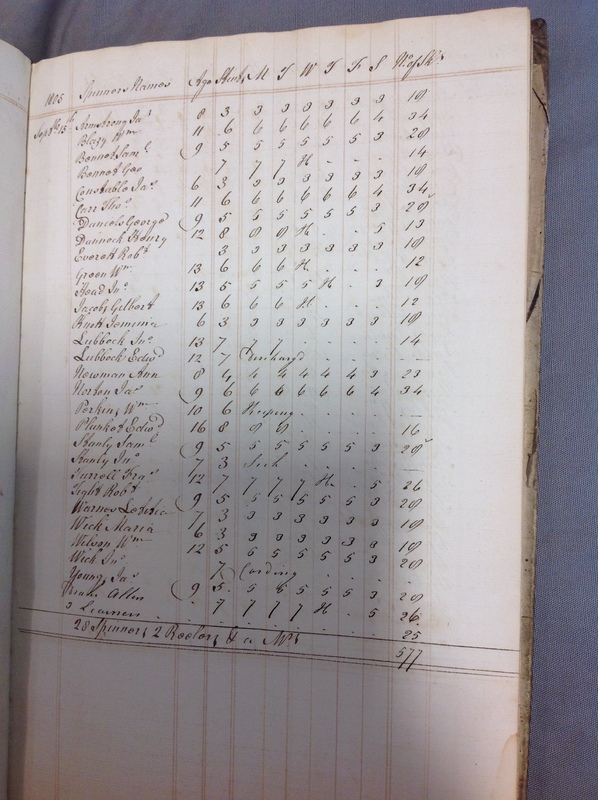 1805 Spinners Names Age Stint M T W T F S No. of Sks
Sept 8th 13th Armstrong Jas 8 3 3 3 3 3 3 3 18
Blazy Wm 11 6 6 6 6 6 6 4 34
Bennet Saml 9 5 5 5 5 5 5 3 28
Bennet Geo 7 7 7 H - - - 14
Constable Jas 6 3 3 3 3 3 3 3 18
Carr Thos 11 6 6 6 6 6 6 4 34
Daniels George 9 5 5 5 5 5 5 3 28
Dunnock Henry 12 8 8 H - - 5 13
Everett Robt 3 3 3 3 3 3 3 18
Green Wm 13 6 6 6 H - - - 12
Head Jno 13 5 5 5 5 H - 3 18
Jacobs Gilbert 13 6 6 6 H - - - 12
Knott Jemima 6 3 3 3 3 3 3 3 18
Lubbock Jno 13 7 7 7 - - - - 14
Lubbock Edwd 12 7 Discharg'd - - - —
Newman Ann 8 4 4 4 4 4 4 3 23
Norton Jas 9 6 6 6 6 6 6 4 34
Perkins Wm 10 6 Keeping - - - - —
Plunket Edwd 16 8 8 8 - - - - 16
Stanly Saml 9 5 5 5 5 5 5 3 28
Stanly Jno 7 3 Sick - - - - —
Turrell Fras 12 7 7 7 7 H - 5 26
Tight Robt 9 5 5 5 5 5 5 3 28
Warnes Letitia 7 3 3 3 3 3 3 3 18
Wick Maria 6 3 3 3 3 3 3 3 18
Wilson Wm 12 5 5 5 5 5 5 3 28
Wick Jno 7 Carding - - - - -
Young Jas 9 5 5 5 5 5 5 3 28
Allen 7 7 7 7 H - 5 26
3 Learners - - - - - - - 25
28 Spinners 2 Reelers & a Mrs 577